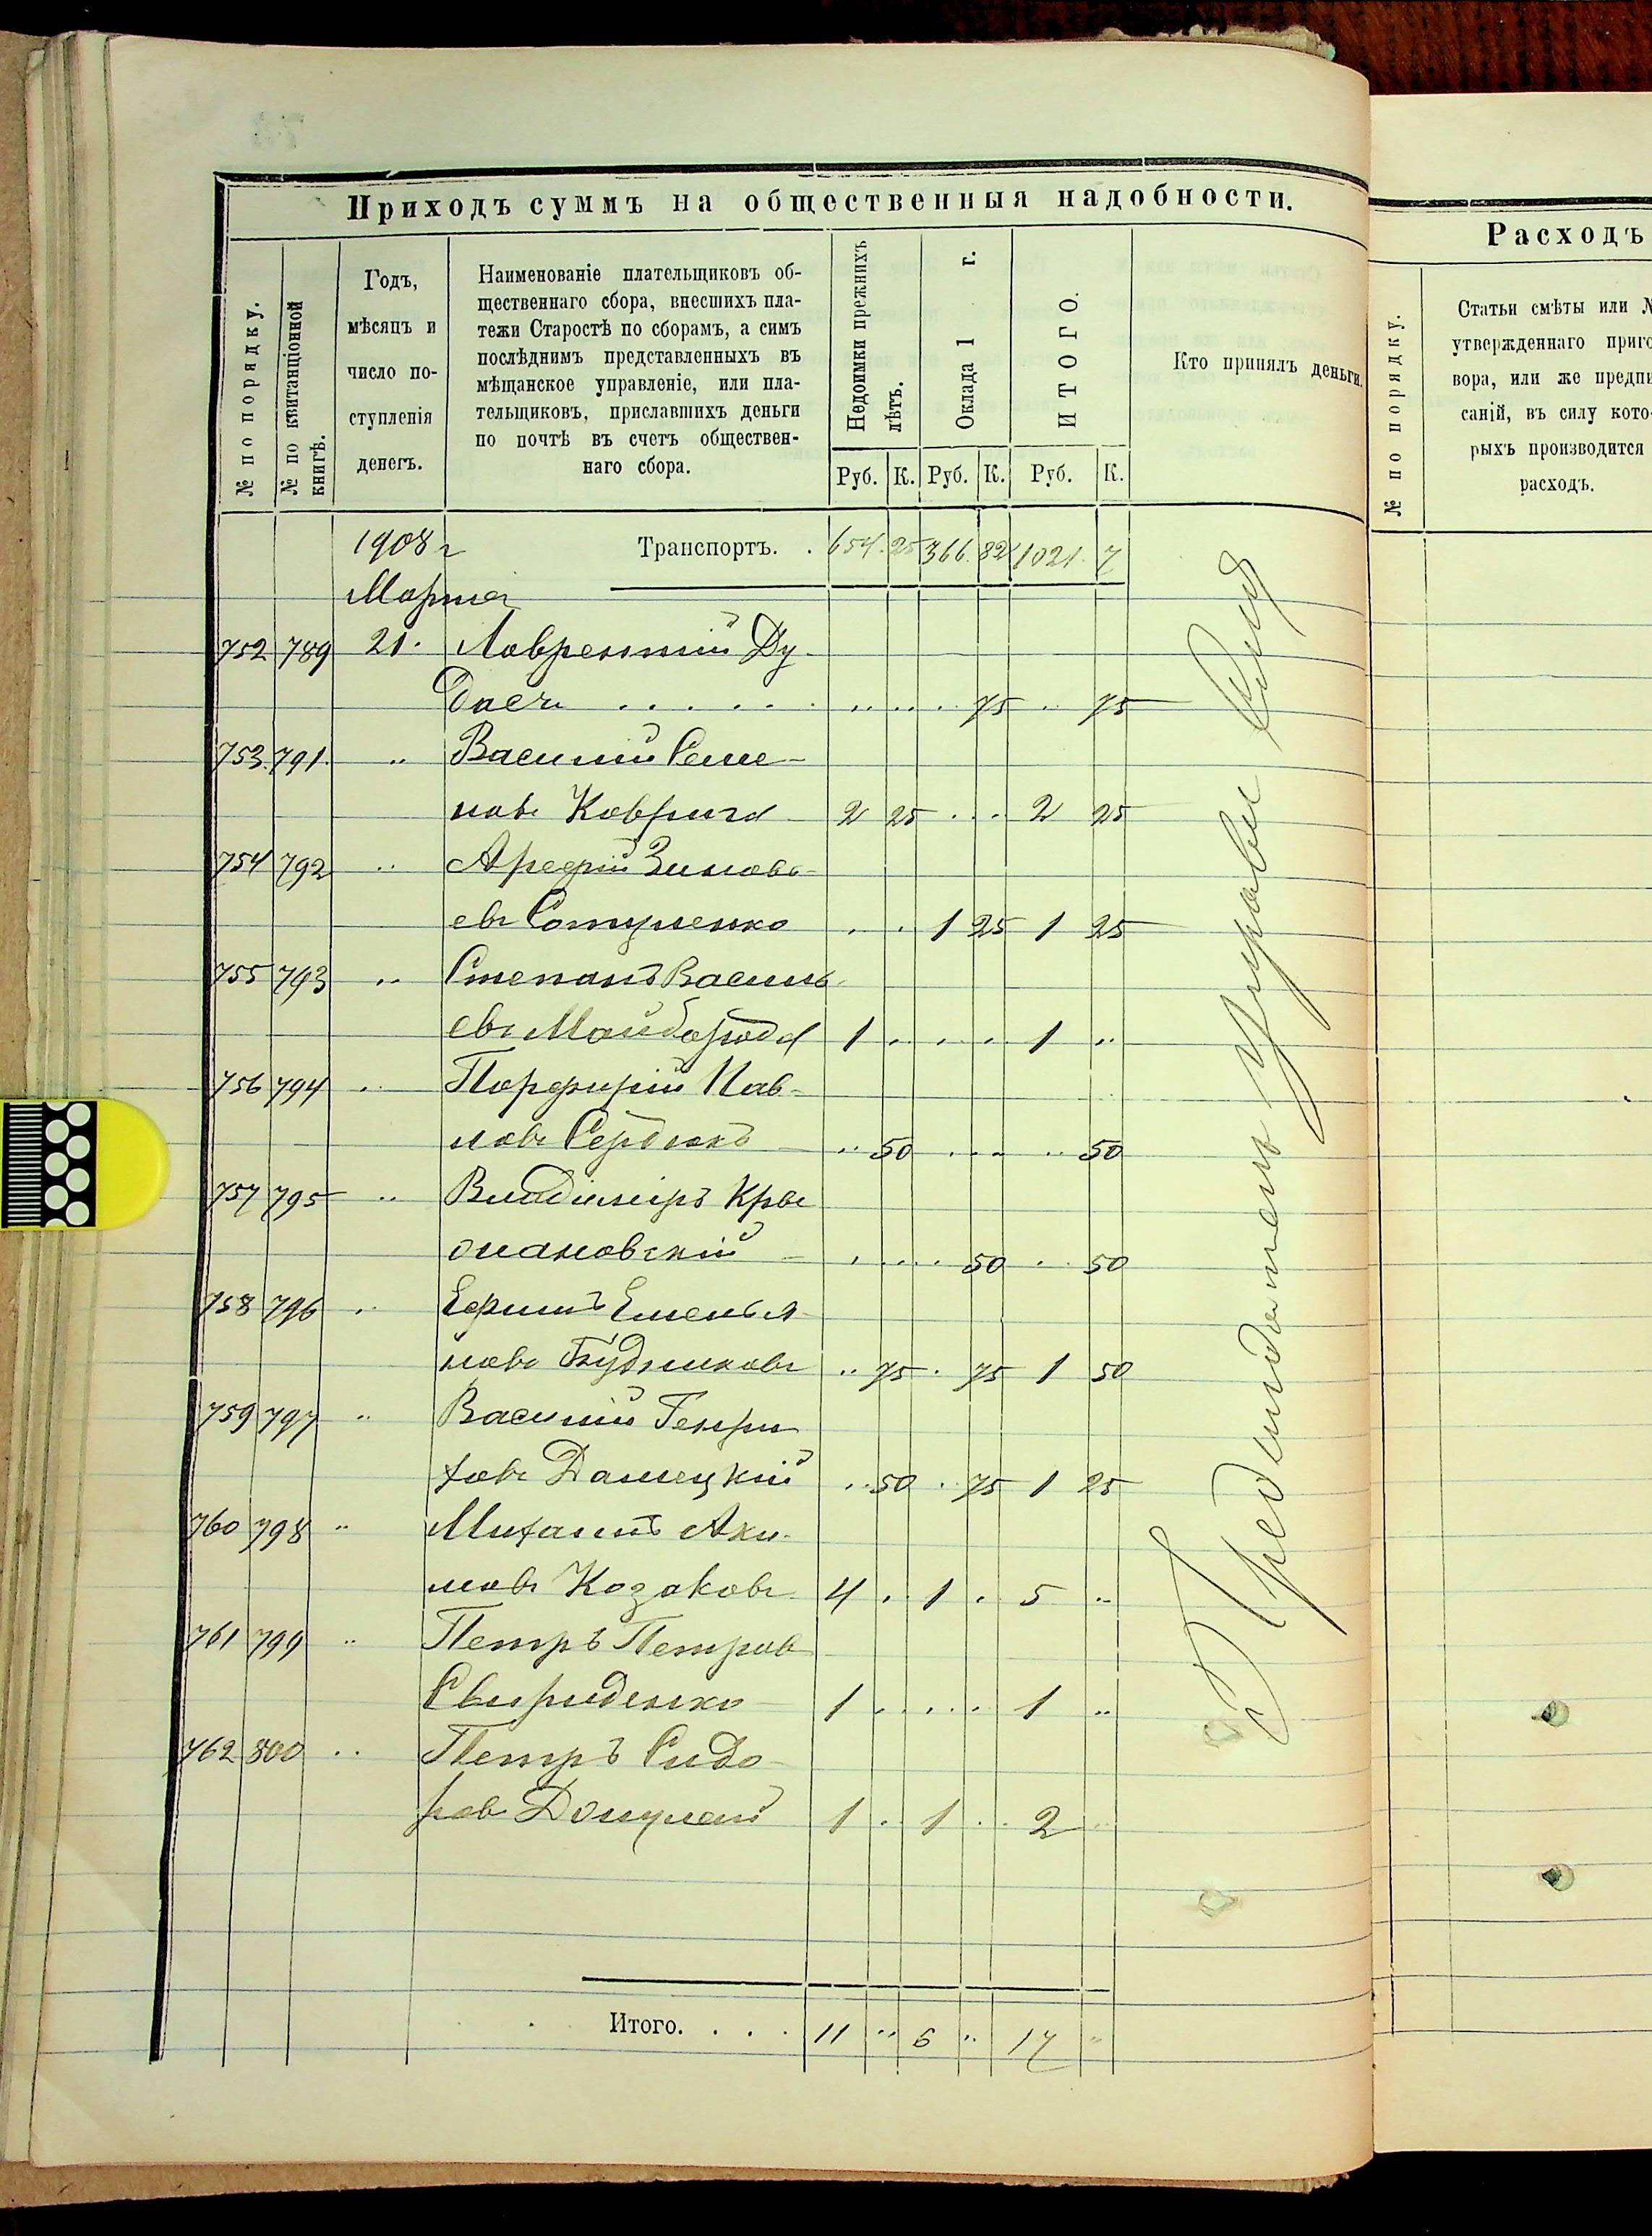 Приходъ суммъ на общественныя надобности.
№ по порядку.
№ по квитанціонной
книгѣ.
Годъ,
мѣсяцъ и
число по-
ступленія
денегъ.
Наименованіе плательщиковъ об-
щественнаго сбора, внесшихъ пла-
тежи Старостѣ по сборамъ, а симъ
послѣднимъ представленныхъ въ
мѣщанское управленіе, или пла-
тельщиковъ, приславшихъ деньги
по почтѣ въ счетъ обществен-
наго сбора.
Недоимки прежнихъ
лѣтъ.
Оклада 1 г.
ИТОГО.
Руб. К. Руб. К. Руб. К.
Кто принялъ деньги.
1908 г Транспортъ. . 654. 25 366. 82 1021. 7
Марта
752 789 21. Лаврентій Ду-
. . . . . 75 .. 75
753. 791. .. Василій Семе-
новъ Коврига 2 25 . . . 2 25
754 792 .. Арефій Зиновь-
евъ . . 1 25 1 25
755 793 .. Степанъ Василь-
евъ Майборода 1 . . . . 1 ..
756 794 .. Порфирій Пав-
ловъ Сердюкъ .. 50 . . . .. 50
757 795 .. Владиміръ Кры
жановскій . . . . 50 .. 50
758 796 .. Ефимъ Емелья-
новъ Будниковъ .. 75 . 75 1 50
759 797 .. Василій Генри
ховъ .. 50 . 75 1 25
760 798 .. Михаилъ Аки-
мовъ Козаковъ 4 . 1 . 5 ..
761 799 .. Петръ Петровъ
Свириденко 1 . . . . 1 ..
762 800 .. Петръ Сидо-
ровъ 1 . 1 . . 2 ..
Итого. . . . 11 .. 6 .. 17 ..
Предсидатель управы
Расходъ
№ по порядку.
Статьи смѣты или №
утвержденнаго приго
вора, или же предпи
саній, въ силу кото-
рыхъ производится
расходъ.